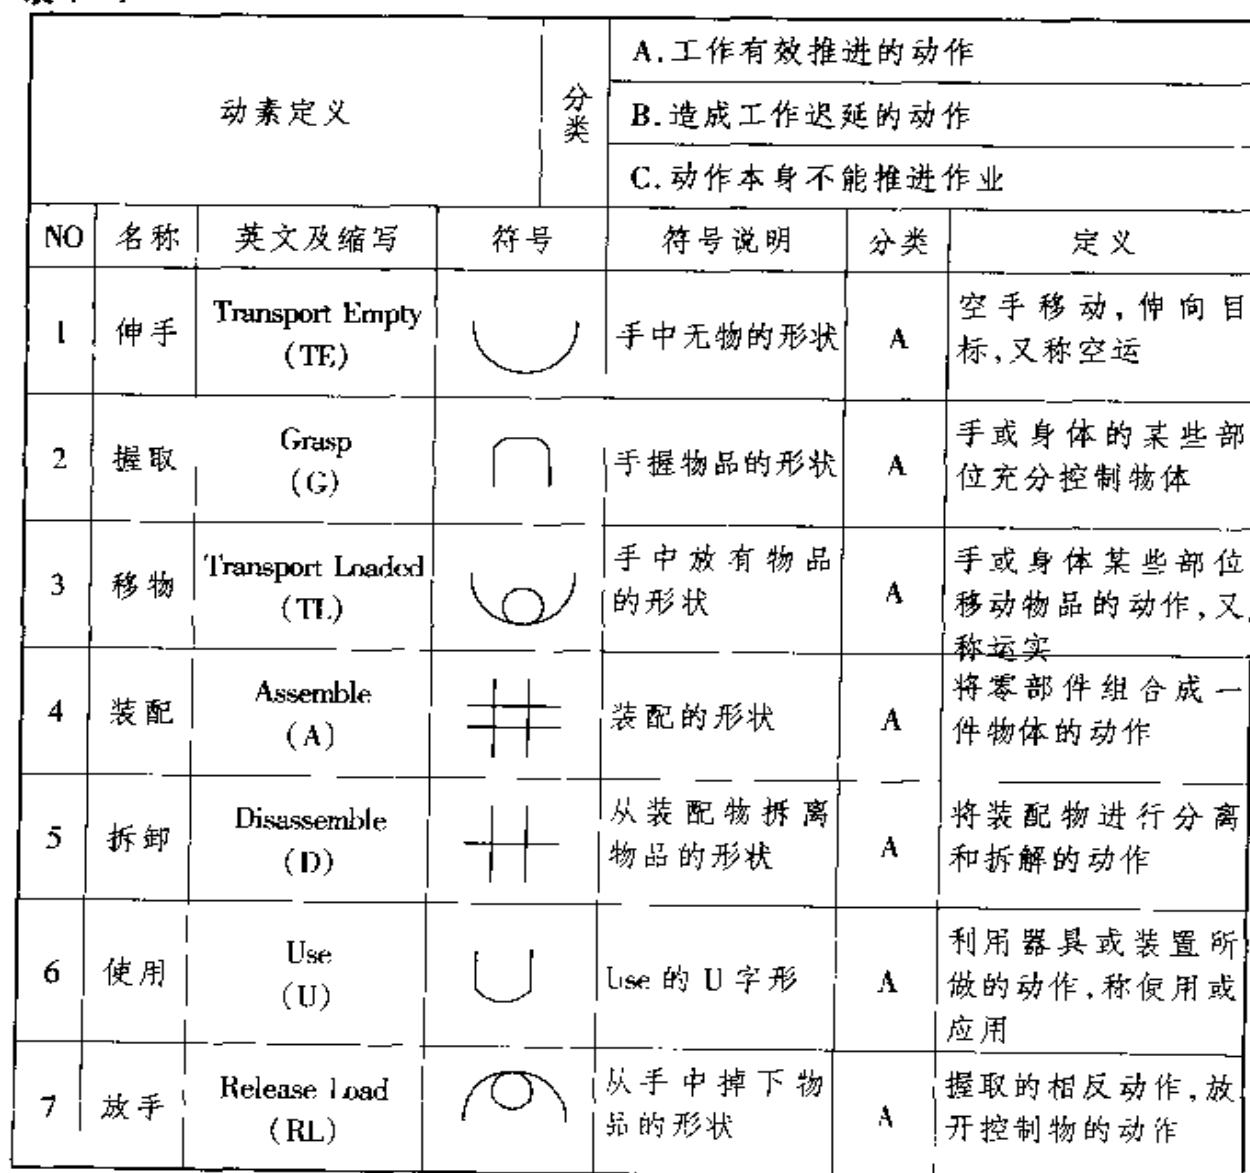 动素定义
分类
A.工作有效推进的动作
B.造成工作迟延的动作
C.动作本身不能推进作业
NO 名称 英文及缩写 符号 符号说明 分类 定义
1 伸手 Transport Empty (TE) 手中无物的形状 A 空手移动,伸向目标,又称空运
2 握取 Grasp (G) 手握物品的形状 A 手或身体的某些部位充分控制物体
3 移物 Transport Loaded (TL) 手中放有物品的形状 A 手或身体某些部位移动物品的动作,又称运实
4 装配 Assemble (A) 装配的形状 A 将零部件组合成一件物体的动作
5 拆卸 Disassemble (D) 从装配物拆离物品的形状 A 将装配物进行分离和拆解的动作
6 使用 Use (U) Use 的 U 字形 A 利用器具或装置所做的动作,称使用或应用
7 放手 Release Load (RL) 从手中掉下物品的形状 A 握取的相反动作,放开控制物的动作